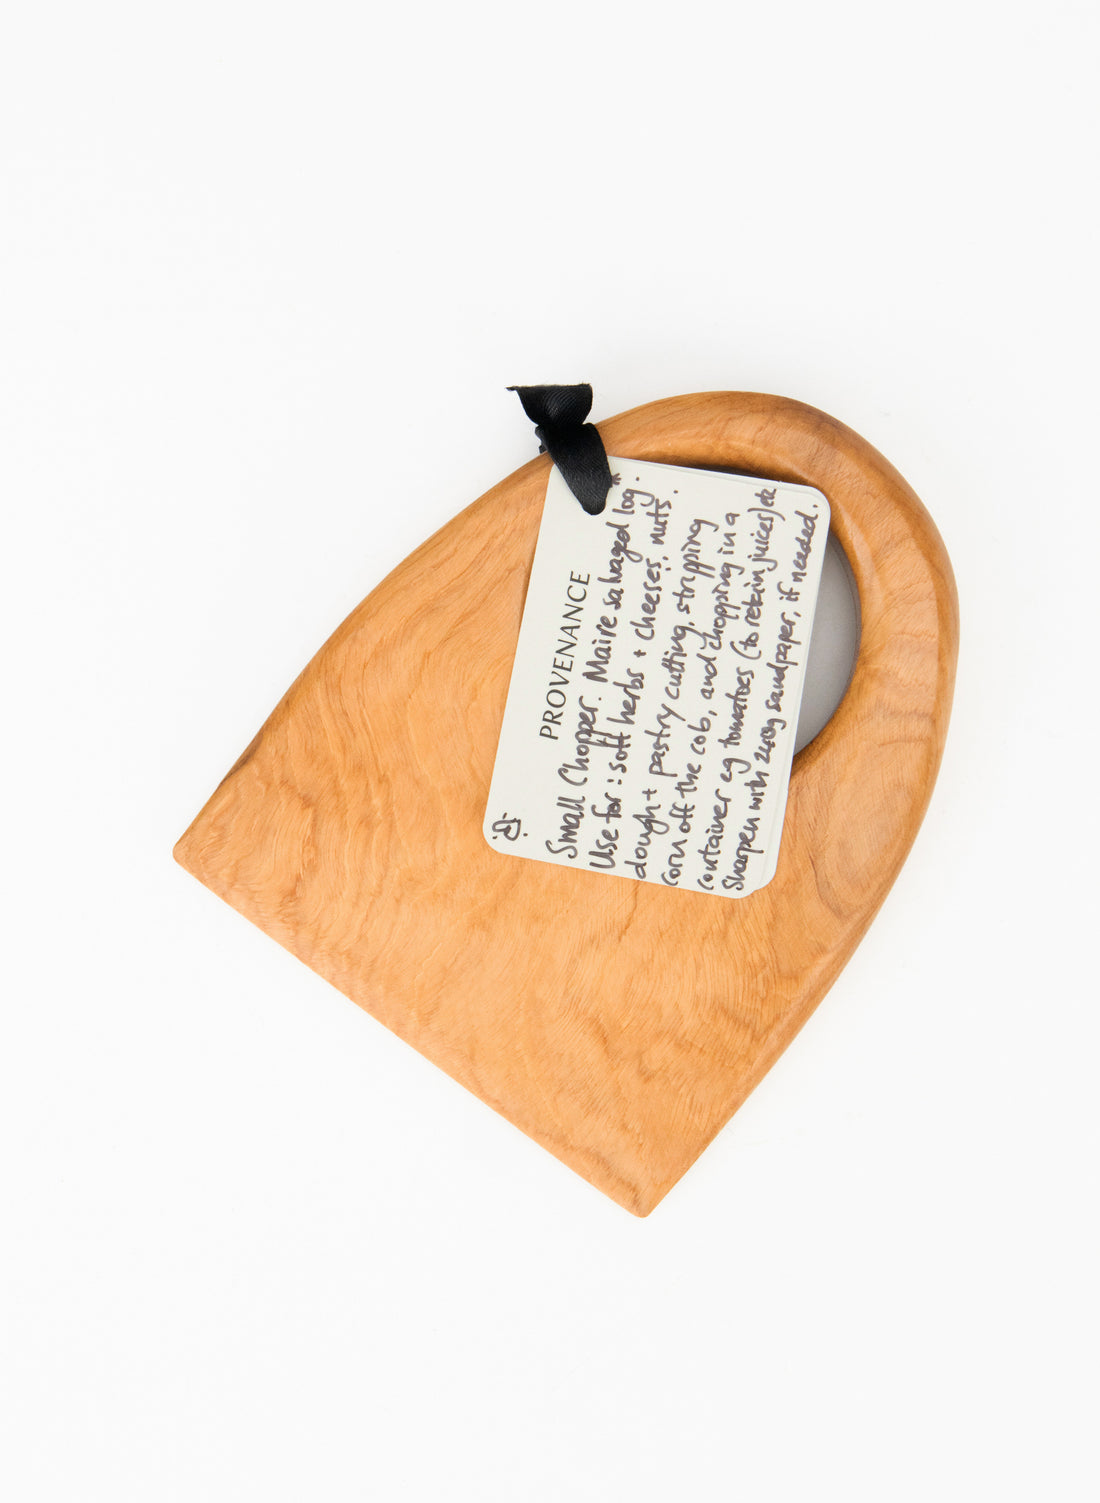 PROVENANCE
Small Chopper. Maire salvaged log.*
Use for: soft herbs + cheeses, nuts.
dough + pastry cutting, stripping
corn off the cob, and chopping in a
container eg tomatoes (to retain juices) etc
Sharpen with 240g sandpaper, if needed.